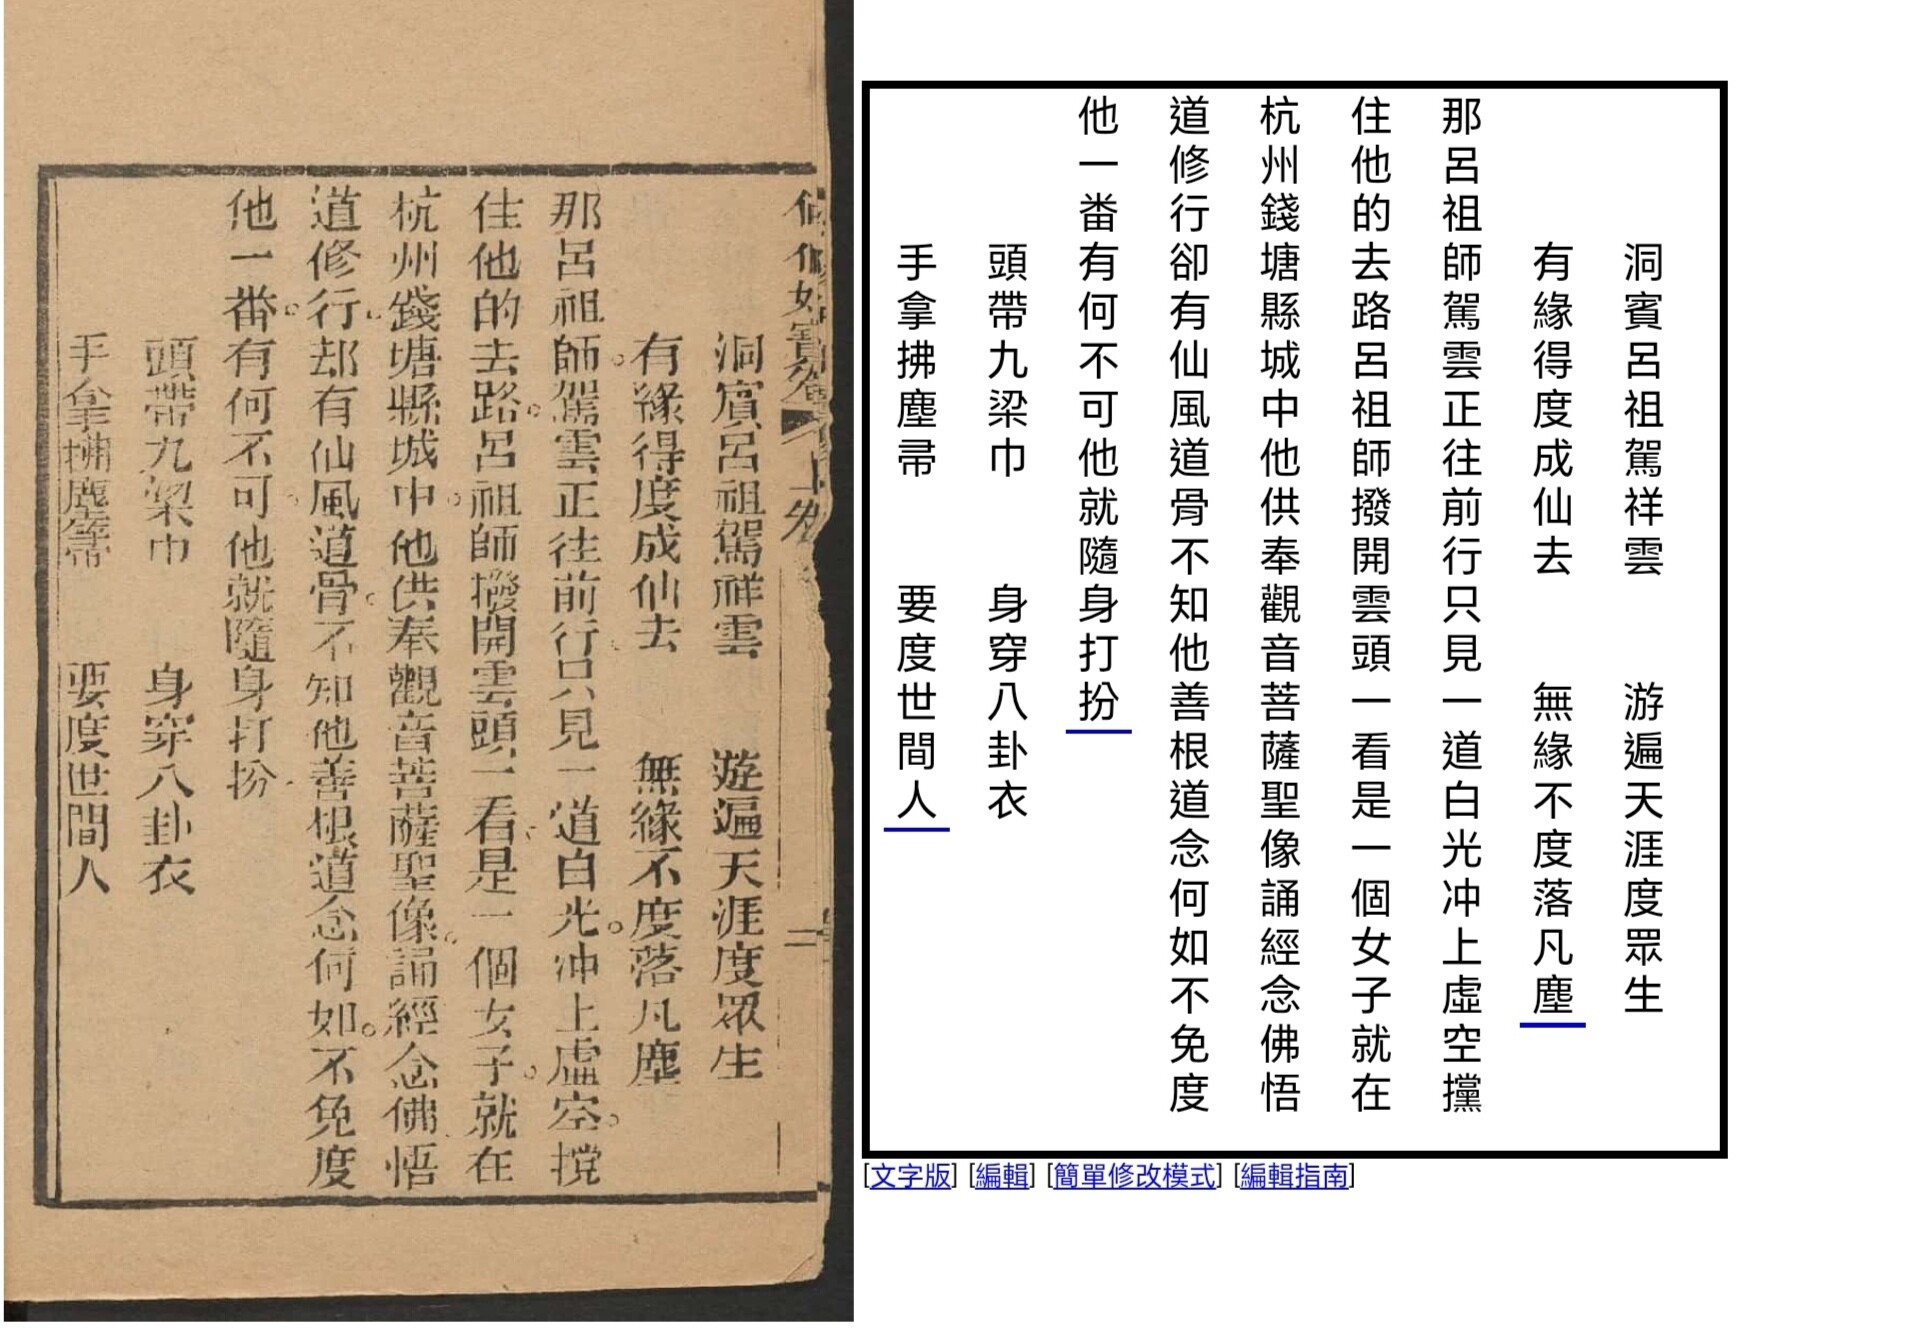 何仙姑寶卷 上卷 二
洞賓呂祖駕祥雲 遊遍天涯度眾生
有緣得度成仙去 無緣不度落凡塵
那呂祖師。駕雲正往前行、只見一道白光。冲上虛空。攩
住他的去路。呂祖師撥開雲頭一看、是一個女子。就在
杭州錢塘縣城中。他供奉觀音菩薩聖像。誦經念佛悟
道修行、却有仙風道骨。不知他善根道念何如。不免度
他一番。有何不可。他就隨身打扮、
頭帶九梁巾 身穿八卦衣
手拿拂塵帚 要度世間人
洞賓呂祖駕祥雲 游遍天涯度眾生
有緣得度成仙去 無緣不度落凡塵
那呂祖師駕雲正往前行只見一道白光冲上虛空攩
住他的去路呂祖師撥開雲頭一看是一個女子就在
杭州錢塘縣城中他供奉觀音菩薩聖像誦經念佛悟
道修行卻有仙風道骨不知他善根道念何如不免度
他一畨有何不可他就隨身打扮
頭帶九梁巾 身穿八卦衣
手拿拂塵帚 要度世間人
[文字版] [編輯] [簡單修改模式] [編輯指南]